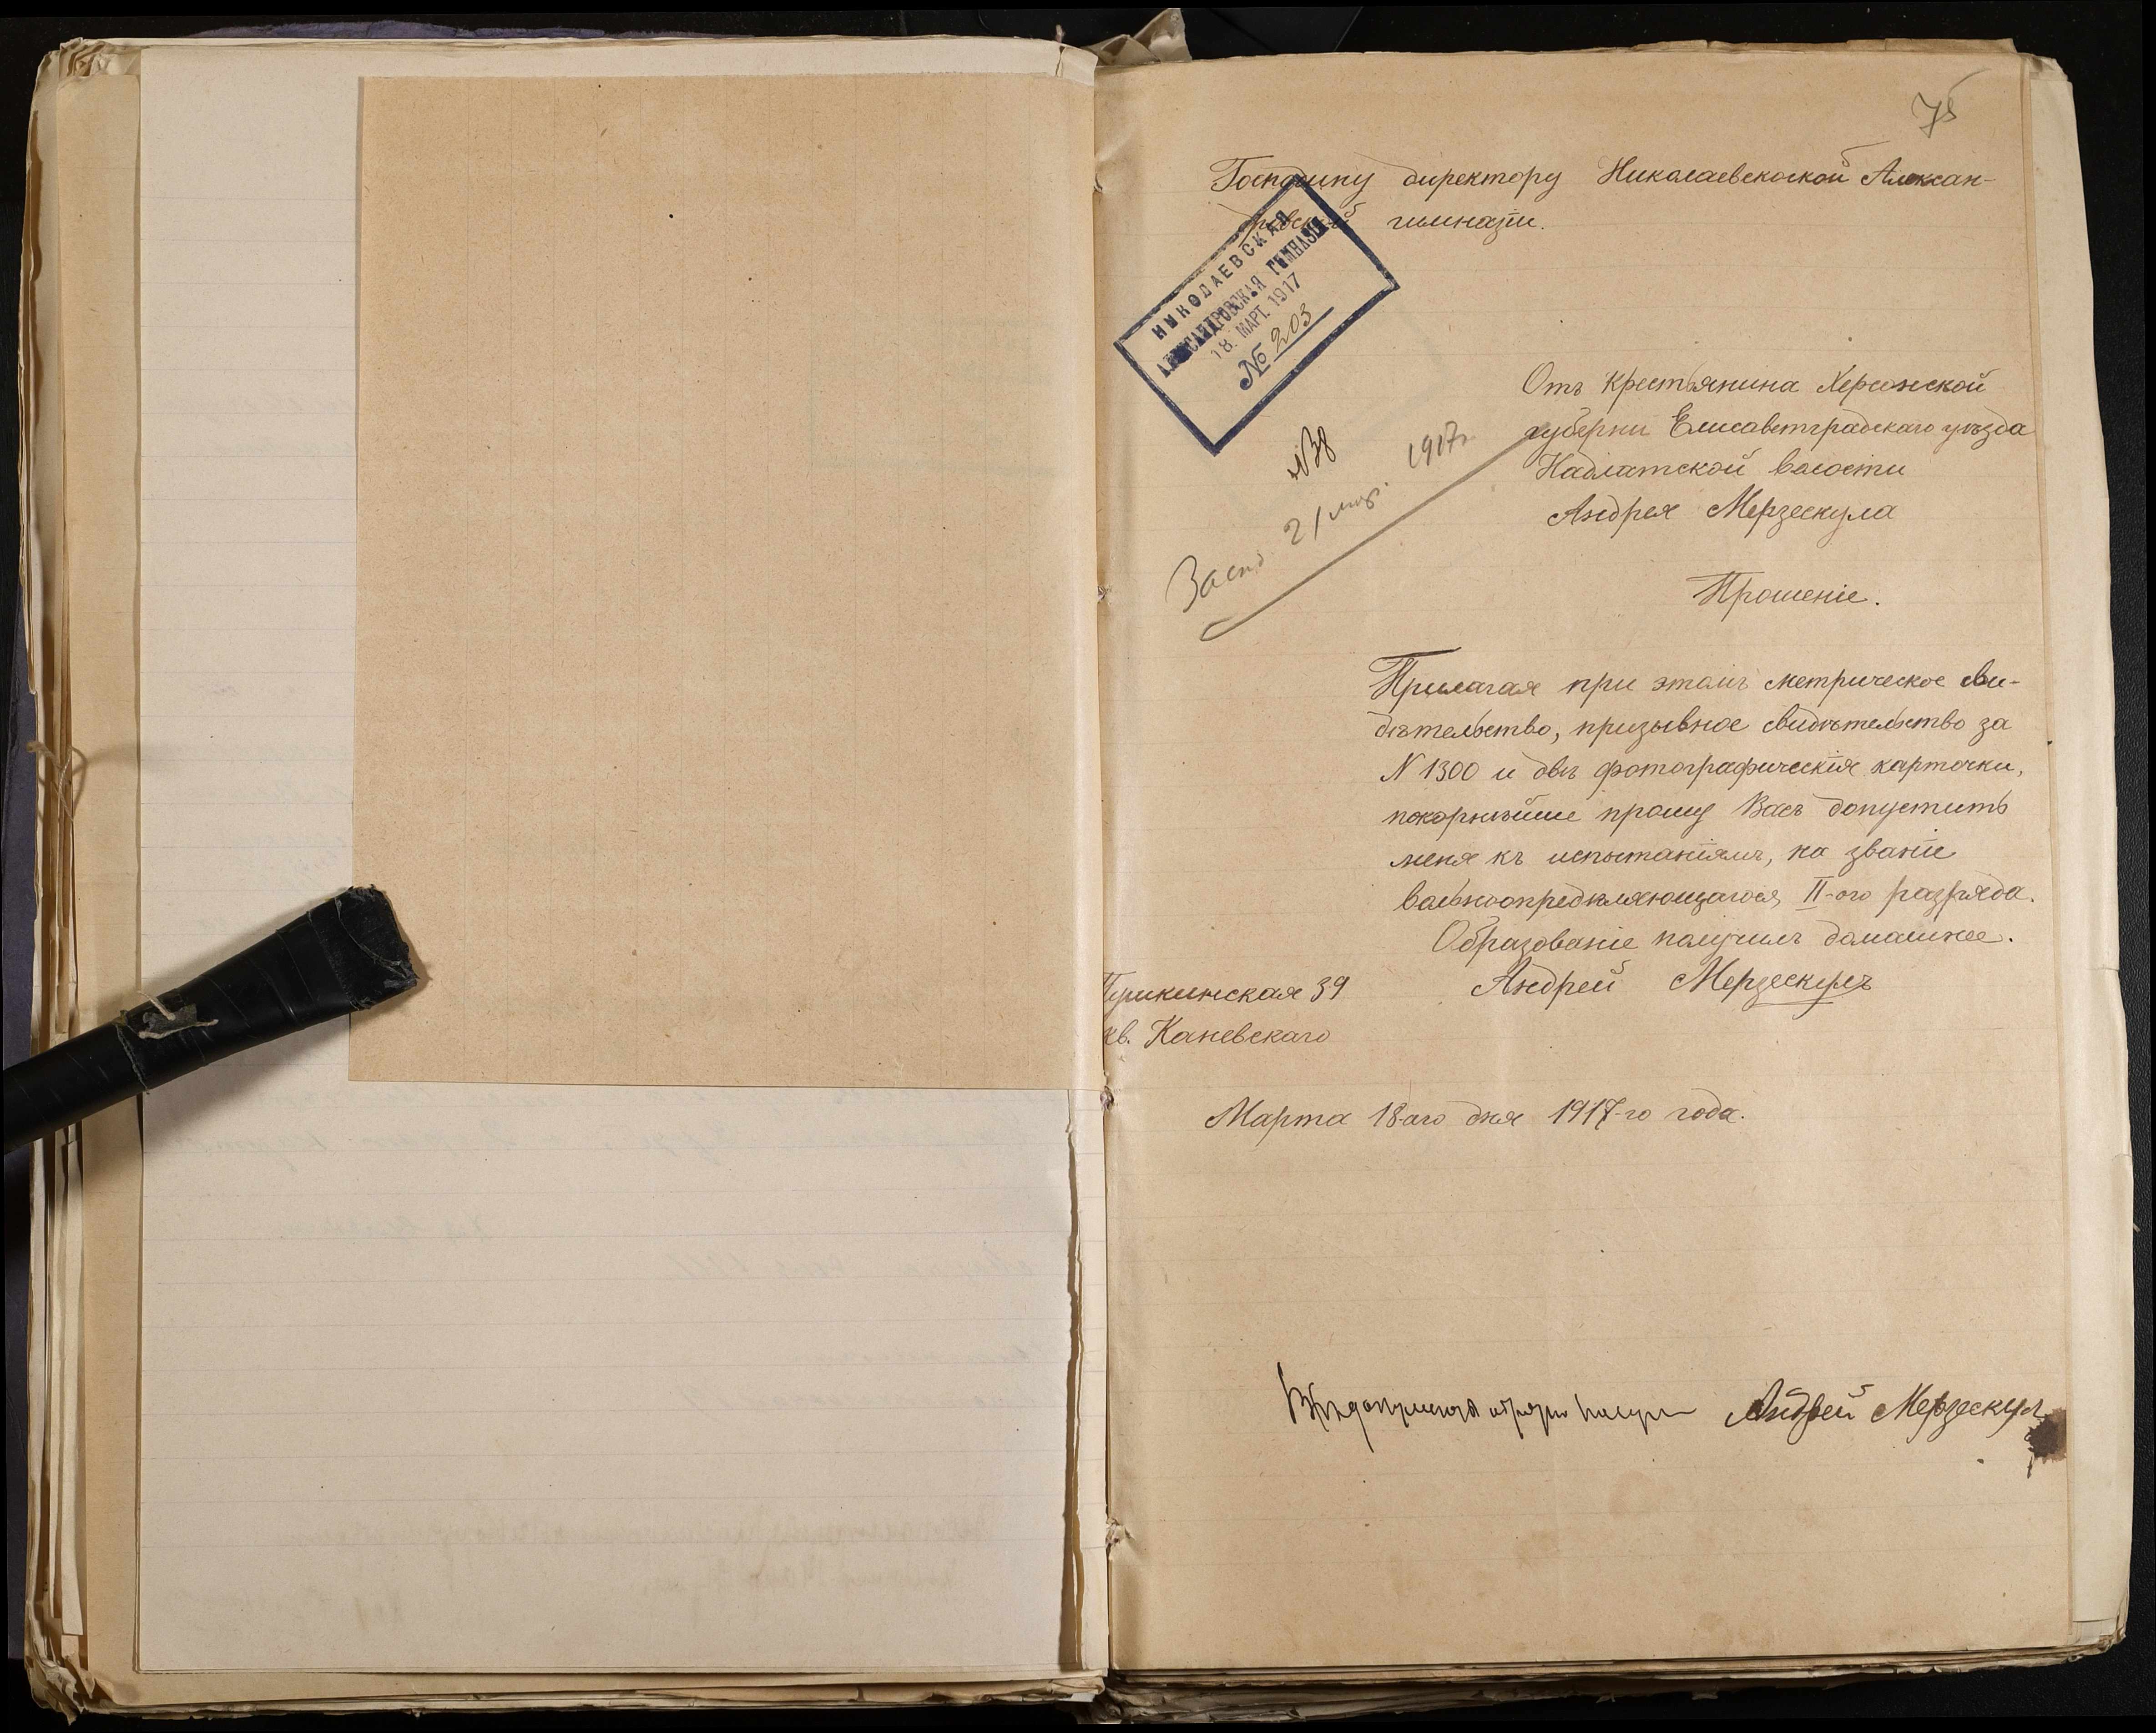 75
Господину директору Николаевскоской Алексан-
дровской гимназіи.
НИКОЛАЕВСКАЯ
АЛЕКСАНДРОВСКАЯ ГИМНАЗІЯ
18. МАРТ. 1917
№ 203
Отъ крестьянина Херсонской
губерніи Елисаветградскаго уѣзда
Надлатской волости
Андрея Мерзескула
N 38
21 мар. 1917г.
Прошеніе.
Прилагая при этомъ метрическое сви-
дѣтельство, призывное свидѣтельство за
N 1300 и двѣ фотографическія карточки,
покорнѣйше прошу Васъ допустить
меня къ испытаніямъ, на званіе
вольноопредѣляющагося II-ого разряда.
Образованіе получилъ домашнее.
Андрей Мерзескулъ
Пушкинская 39
кв. Каневскаго
Марта 18-аго дня 1917-го года.
обратно Андрей Мерзескул